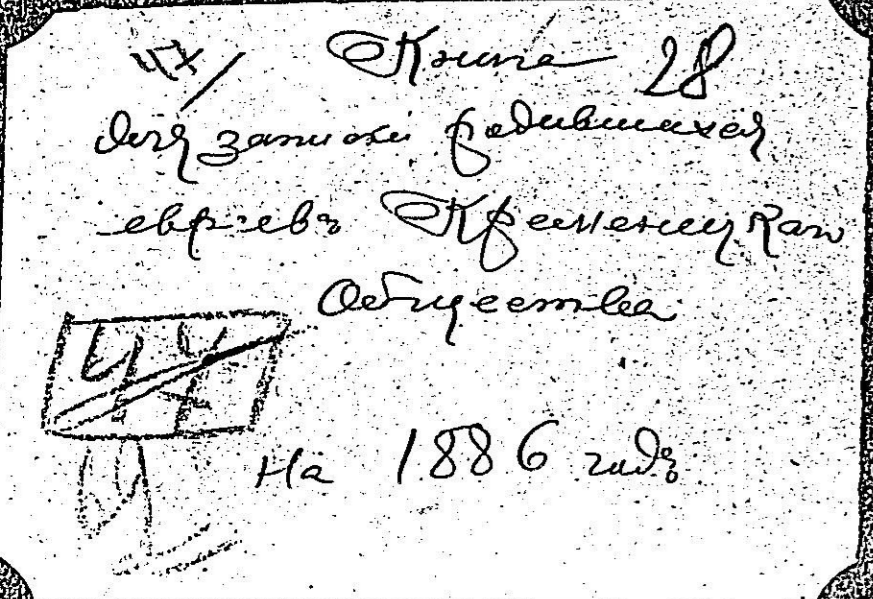 47/ Книга 28
для записки родившихся
евреевъ Кременецкаго
Общества
47
На 1886 годъ